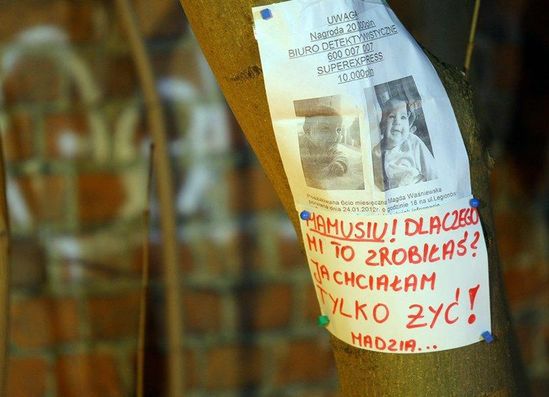 UWAGA!
Nagroda 20.000pln
BIURO DETEKTYWISTYCZNE
600 007 007
SUPEREXPRESS
10.000pln
Poszukiwana 6cio miesięczna Magda Waśniewska
porwana dnia 24.01.2012r o godzinie 18 na ul Legionów
MAMUSIU! DLACZEGO
MI TO ZROBIŁAŚ?
JA CHCIAŁAM
TYLKO ŻYĆ!
MADZIA...